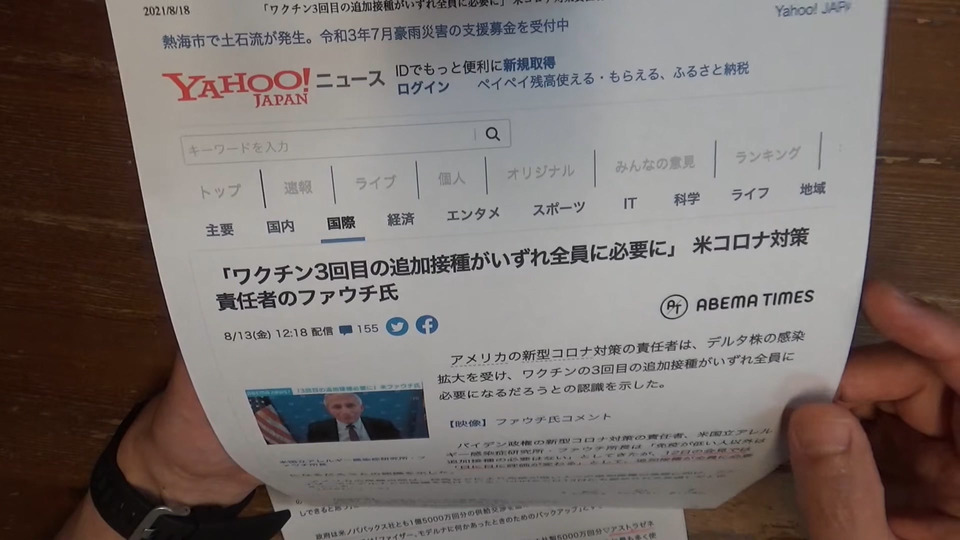 2021/8/18
「ワクチン3回目の追加接種がいずれ全員に必要に」
Yahoo! JAPAN
熱海市で土石流が発生。令和3年7月豪雨災害の支援募金を受付中
YAHOO! ニュース
JAPAN
IDでもっと便利に新規取得
ログイン ペイペイ残高使える・もらえる、ふるさと納税
キーワードを入力
トップ 速報 ライブ 個人 オリジナル みんなの意見 ランキング
主要 国内 国際 経済 エンタメ スポーツ IT 科学 ライフ 地域
「ワクチン3回目の追加接種がいずれ全員に必要に」 米コロナ対策
責任者のファウチ氏
8/13(金) 12:18 配信 155
ABEMA TIMES
アメリカの新型コロナ対策の責任者は、デルタ株の感染
拡大を受け、ワクチンの3回目の追加接種がいずれ全員に
必要になるだろうとの認識を示した。
【映像】 ファウチ氏コメント
バイデン政権の新型コロナ対策の責任者、米国立アレル
ギー感染症研究所・ファウチ所長は「免疫が低い人以外は
追加接種の必要はない」としてきたが、12日の会見では
政府は米ノババックス社とも1億5000万回分の供給交渉を